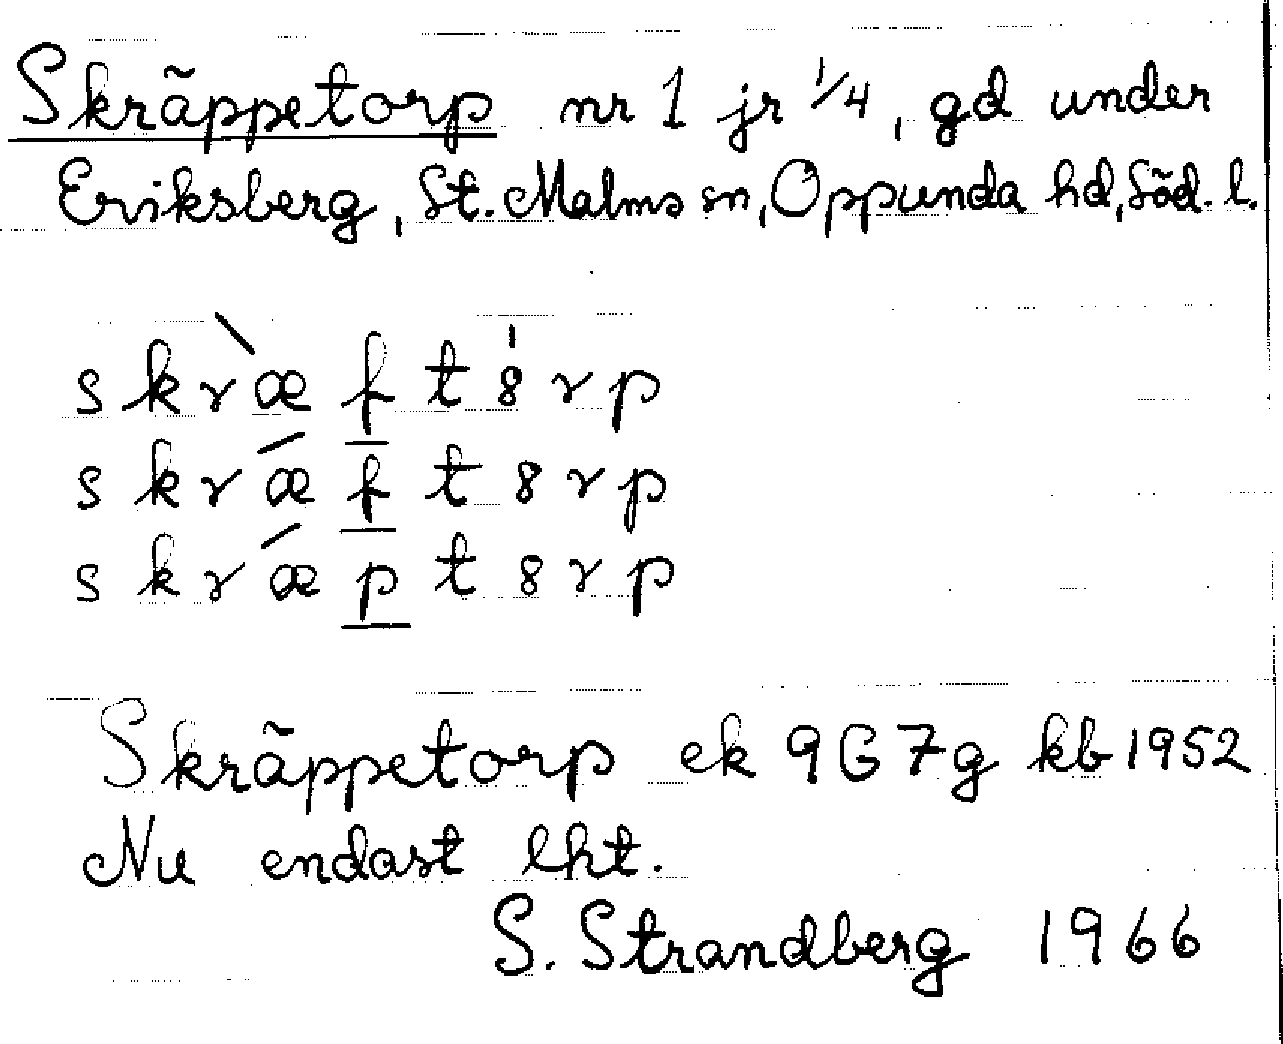 Skräppetorp nr 1 jr 1/4, gd under
Eriksberg, St. Malms sn, Oppunda hd, Söd. l.
skræ̀ft8̍rp
skrǽft8rp
skrǽpt8rp
Skräppetorp ek 9G7g kb 1952
Nu endast lht.
S. Strandberg 1966